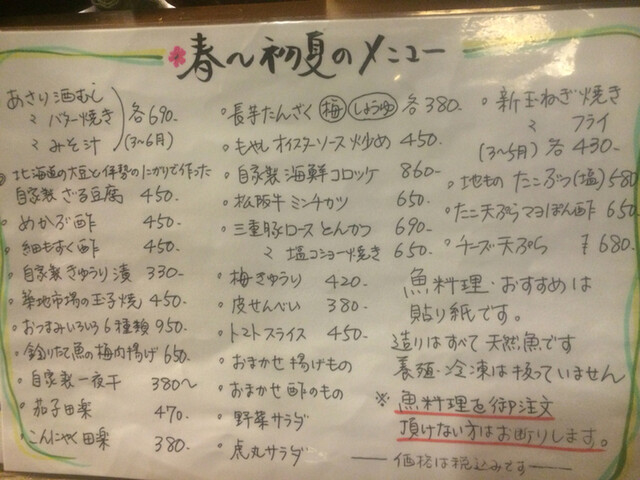 春〜初夏のメニュー
あさり酒むし
〃 バター焼き 各690-
〃 みそ汁 (3〜6月)
・北海道の大豆と伊勢のにがりで作った
自家製ざる豆腐 450-
・めかぶ酢 450-
・細もずく酢 450-
・自家製きゅうり漬 330-
・築地市場の玉子焼 450-
・おつまみいろいろ6種類 950-
・釣りたて魚の梅肉揚げ 650-
・自家製一夜干 380〜
・茄子田楽 470-
・こんにゃく田楽 380-
・長芋たんざく 梅 しょうゆ 各380-
・もやしオイスターソース炒め 450-
・自家製海鮮コロッケ 860-
・松阪牛ミンチカツ 650-
・三重豚ロースとんかつ 690-
〃 塩コショー焼き 650-
・梅きゅうり 420-
・皮せんべい 380-
・トマトスライス 450-
・おまかせ揚げもの
・おまかせ酢のもの
・野菜サラダ
・虎丸サラダ
・新玉ねぎ焼き
〃 フライ
(3〜5月) 各430-
・地もの たこぶつ(塩) 580
・たこ天ぷらマヨぽん酢 650
・チーズ天ぷら ¥680-
魚料理・おすすめは
貼り紙です。
造りはすべて天然魚です
養殖・冷凍は扱っていません
※魚料理を御注文
頂けない方はお断りします。
―― 価格は税込みです ――